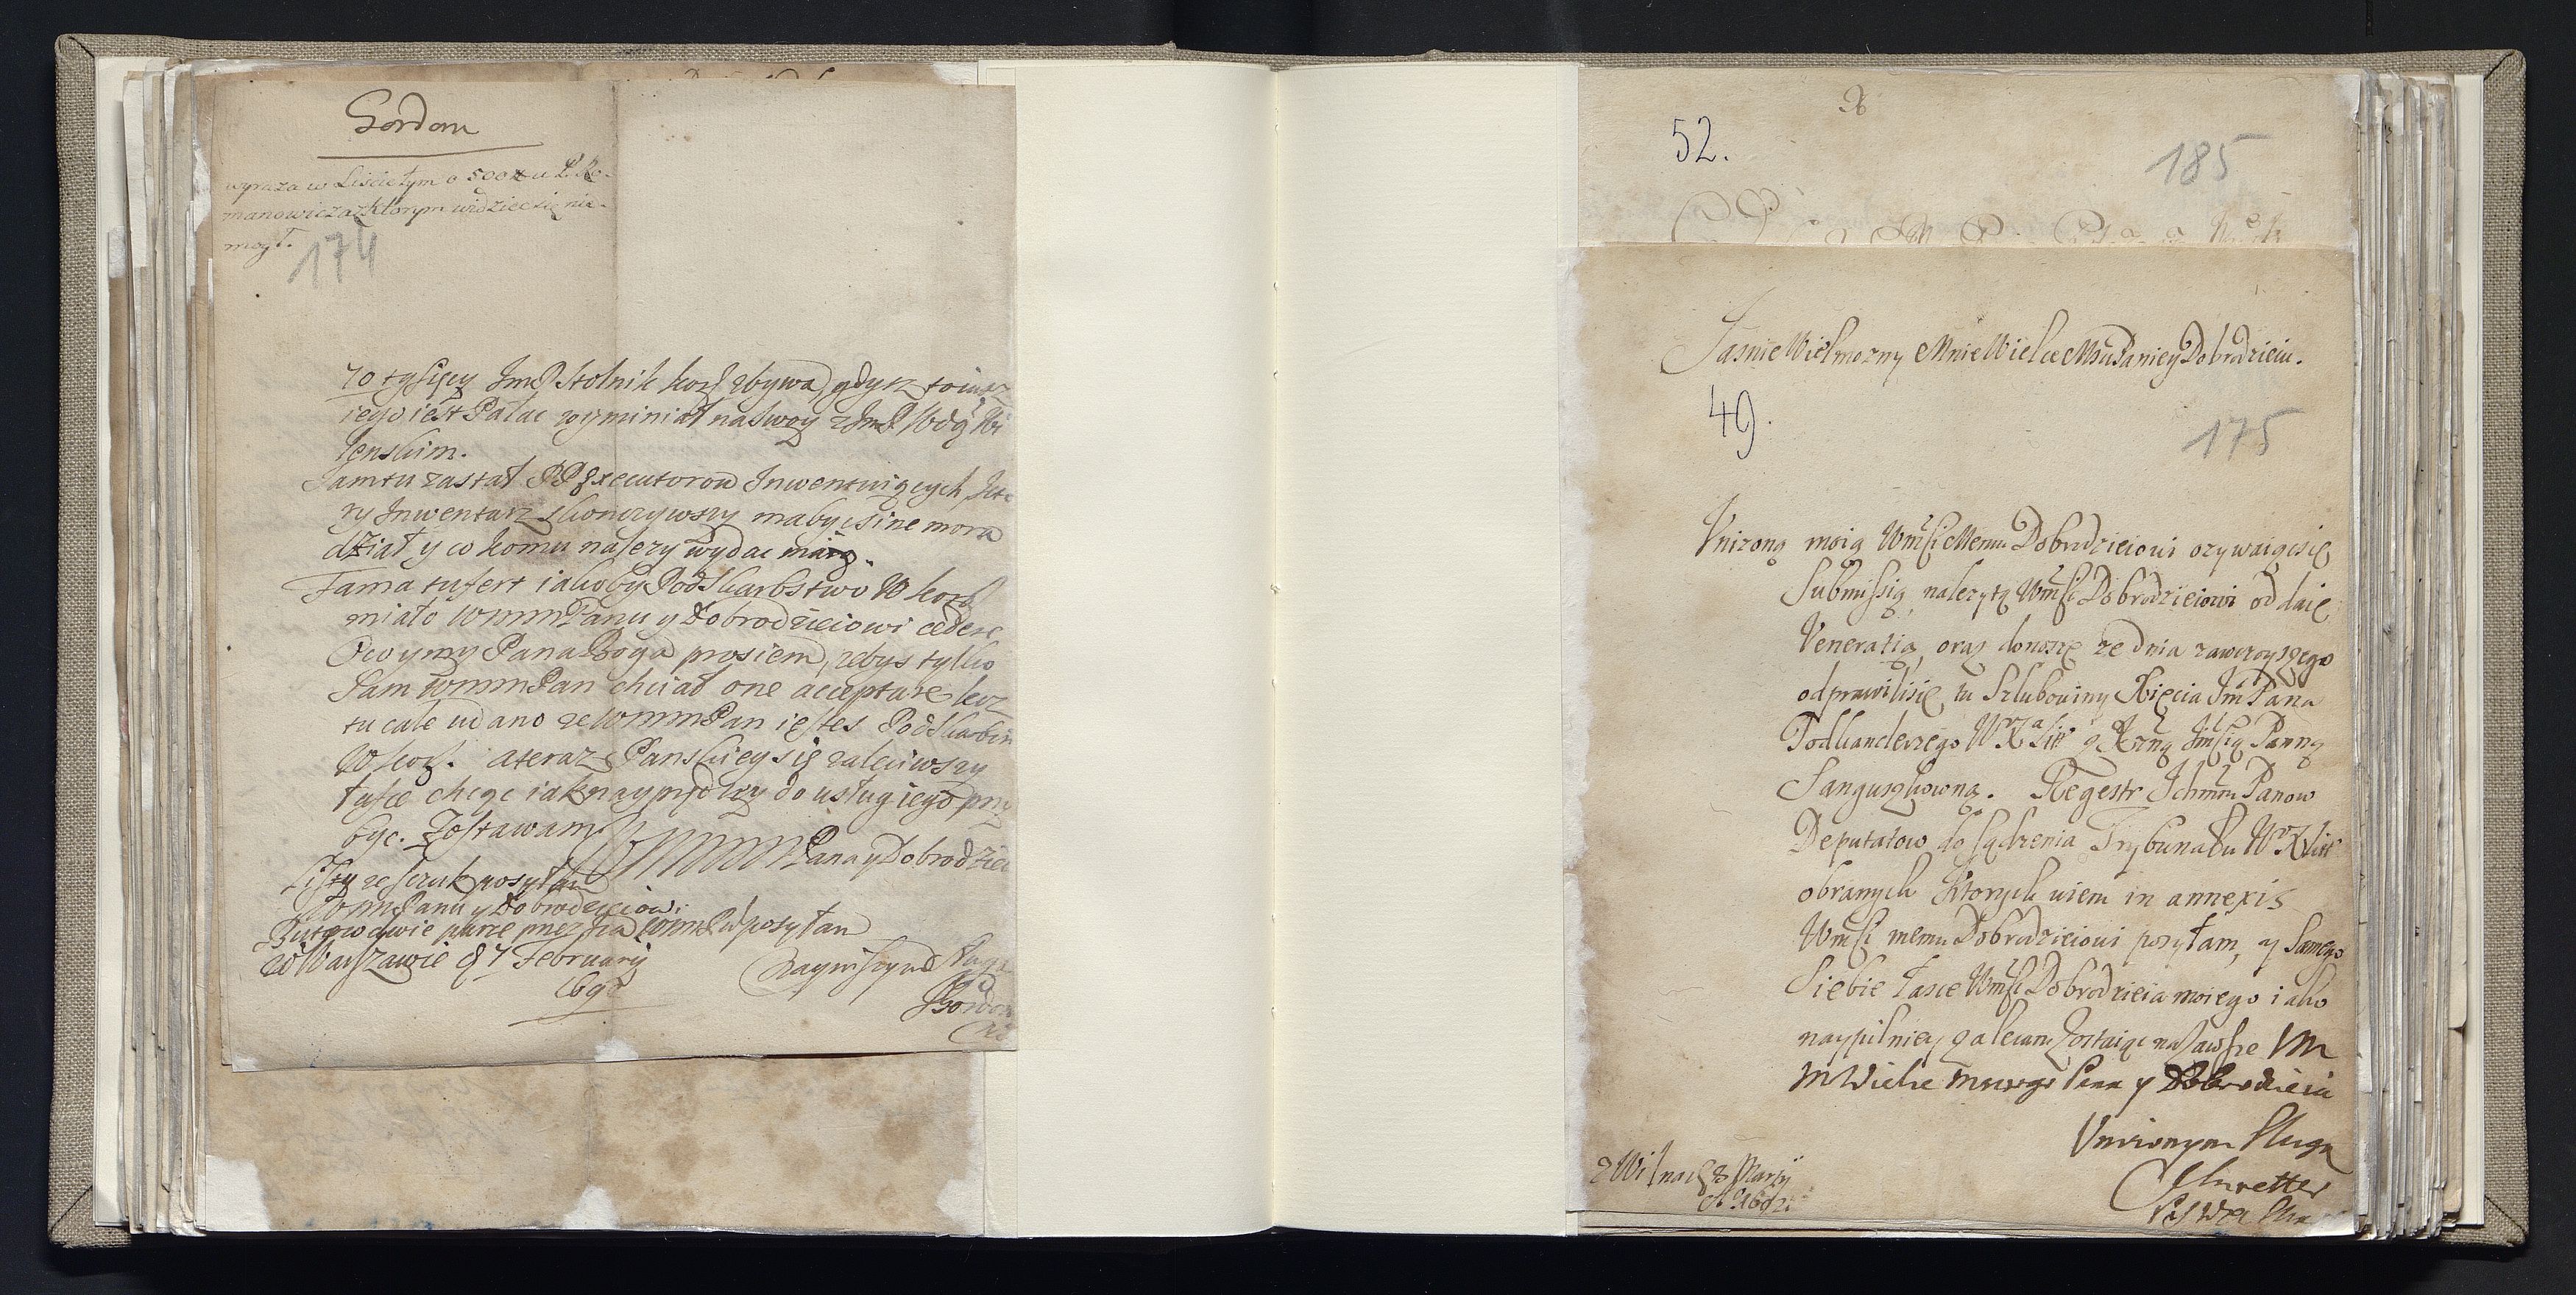 Gordon
wyraza w Liście tym o 500 zł u P. Ro-
manowicza z ktorym widziec się nie-
mogł.
174
70 tysięcy JmP Stolnik kor zbywa, gdysz to iusz
iego iest Pałac wyminiał na swoy z JmP Wdą Wi
lenskim.
Jam tu zastał PP Executorow Inwentuiących, kto
ry Inwentarz skonczywszy ma byc sine mora
dział y co komu nalezy wydac maią.
Fama tu fert iakoby Podskarbstwo W kor
miało WmmPanu y Dobrodzieiowi cedere
O co y my Pana Boga prosiem, zebys tylko
Sam WmmPan chciał one acceptare lecz
tu cale udano ze WmmPan iestes Podskarbim
W kor. a teraz Panskiey się zaleciwszy
łasce chcąc iak nayprędzy do usług iego przy
byc. Zostawam
Pana y Dobrodzieia
Listy posyłam
WmmPanu y Dobrodzieiowi
posyłam
w Warszawie d 7 February
Naynizszym Sługą
Gordon
52.
185
Jasnie Wielmozny Mnie Wielce Msu Panie y Dobrodzieiu.
49.
175
Vnizoną moią Wmsci Memu Dobrodzieiowi ozywaiąc się
Submissią, nalezytą Wmsci Dobrodzieiowi oddaię
Veneratią, oraz donoszę ze dnia zawczoyszego
odprawili się tu Szlubowiny Xięcia Jm Pana
Podkanclerzego WXLit z Xzną Jmscią Panną
Sanguszkowną. Regestr Ichmm Panow
Deputatow do sądzenia Trybunału WXLitt
obranych ktorych wiem in annexis
Wmsci memu Dobrodzieiowi posyłam, y Samego
Siebie łasce Wmsci Dobrodzieia moiego iako
naypilniey zalecam zostaiąc na zawsze Wm
M Wielce Mwego Pana y Dobrodzieia
Vnizonym Sługą
z Wilna d 8 Marzy